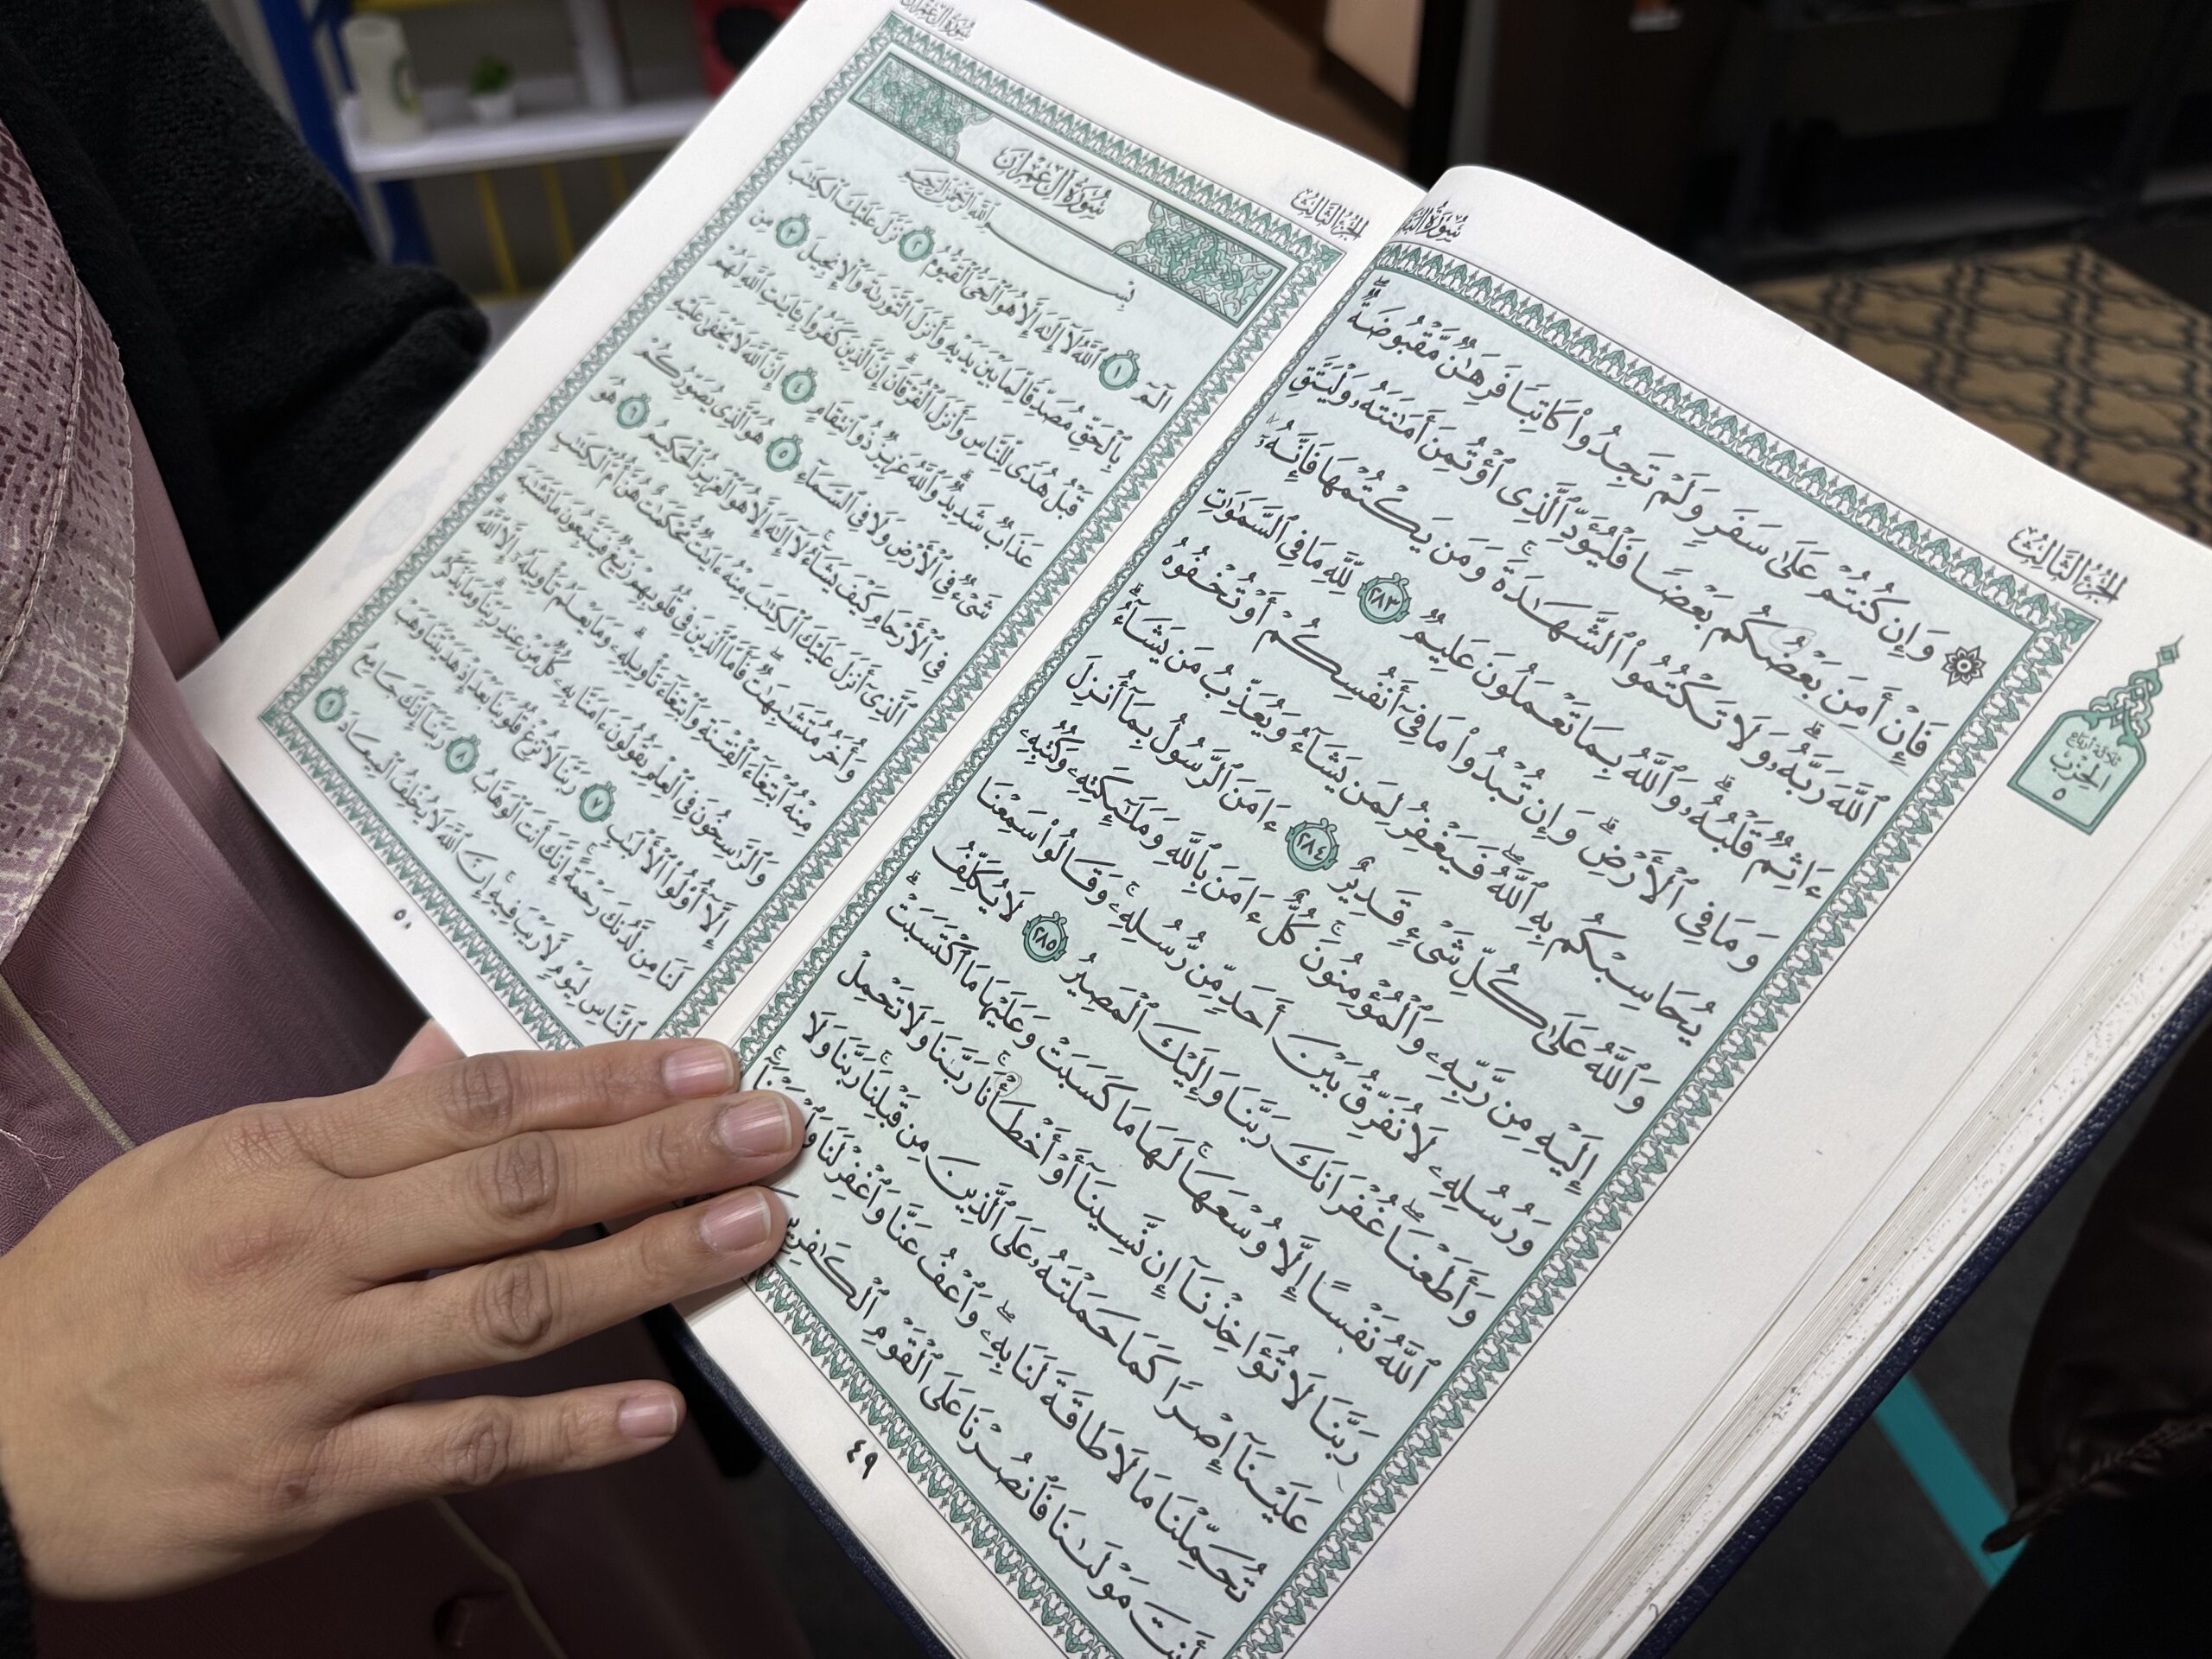 الجزء الثالث
سورة
وَإِن كُنتُمْ عَلَىٰ سَفَرٍ وَلَمْ تَجِدُوا۟ كَاتِبًا فَرِهَٰنٌ مَّقْبُوضَةٌ ۖ
فَإِنْ أَمِنَ بَعْضُكُم بَعْضًا فَلْيُؤَدِّ ٱلَّذِى ٱؤْتُمِنَ أَمَٰنَتَهُۥ وَلْيَتَّقِ
ٱللَّهَ رَبَّهُۥ ۗ وَلَا تَكْتُمُوا۟ ٱلشَّهَٰدَةَ ۚ وَمَن يَكْتُمْهَا فَإِنَّهُۥٓ
ءَاثِمٌ قَلْبُهُۥ ۗ وَٱللَّهُ بِمَا تَعْمَلُونَ عَلِيمٌ ٢٨٣ لِّلَّهِ مَا فِى ٱلسَّمَٰوَٰتِ
وَمَا فِى ٱلْأَرْضِ ۗ وَإِن تُبْدُوا۟ مَا فِىٓ أَنفُسِكُمْ أَوْ تُخْفُوهُ
يُحَاسِبْكُم بِهِ ٱللَّهُ ۖ فَيَغْفِرُ لِمَن يَشَآءُ وَيُعَذِّبُ مَن يَشَآءُ ۗ
وَٱللَّهُ عَلَىٰ كُلِّ شَىْءٍ قَدِيرٌ ٢٨٤ ءَامَنَ ٱلرَّسُولُ بِمَآ أُنزِلَ
إِلَيْهِ مِن رَّبِّهِۦ وَٱلْمُؤْمِنُونَ ۚ كُلٌّ ءَامَنَ بِٱللَّهِ وَمَلَٰٓئِكَتِهِۦ وَكُتُبِهِۦ
وَرُسُلِهِۦ لَا نُفَرِّقُ بَيْنَ أَحَدٍ مِّن رُّسُلِهِۦ ۚ وَقَالُوا۟ سَمِعْنَا
وَأَطَعْنَا ۖ غُفْرَانَكَ رَبَّنَا وَإِلَيْكَ ٱلْمَصِيرُ ٢٨٥ لَا يُكَلِّفُ
ٱللَّهُ نَفْسًا إِلَّا وُسْعَهَا ۚ لَهَا مَا كَسَبَتْ وَعَلَيْهَا مَا ٱكْتَسَبَتْ ۗ
رَبَّنَا لَا تُؤَاخِذْنَآ إِن نَّسِينَآ أَوْ أَخْطَأْنَا ۚ رَبَّنَا وَلَا تَحْمِلْ
عَلَيْنَآ إِصْرًا كَمَا حَمَلْتَهُۥ عَلَى ٱلَّذِينَ مِن قَبْلِنَا ۚ رَبَّنَا وَلَا
تُحَمِّلْنَا مَا لَا طَاقَةَ لَنَا بِهِۦ ۖ وَٱعْفُ عَنَّا وَٱغْفِرْ لَنَا
أَنتَ مَوْلَىٰنَا فَٱنصُرْنَا عَلَى ٱلْقَوْمِ ٱلْكَٰفِرِينَ
ثلاثة أرباع
الحزب
٥
٤٩
الجزء الثالث
سورة آل عمران
سُورَةُ آلِ عِمْرَانَ
بِسْمِ ٱللَّهِ ٱلرَّحْمَٰنِ ٱلرَّحِيمِ
الٓمٓ ١ ٱللَّهُ لَآ إِلَٰهَ إِلَّا هُوَ ٱلْحَىُّ ٱلْقَيُّومُ ٢ نَزَّلَ عَلَيْكَ ٱلْكِتَٰبَ
بِٱلْحَقِّ مُصَدِّقًا لِّمَا بَيْنَ يَدَيْهِ وَأَنزَلَ ٱلتَّوْرَىٰةَ وَٱلْإِنجِيلَ ٣ مِن
قَبْلُ هُدًى لِّلنَّاسِ وَأَنزَلَ ٱلْفُرْقَانَ ۗ إِنَّ ٱلَّذِينَ كَفَرُوا۟ بِـَٔايَٰتِ ٱللَّهِ لَهُمْ
عَذَابٌ شَدِيدٌ ۗ وَٱللَّهُ عَزِيزٌ ذُو ٱنتِقَامٍ ٤ إِنَّ ٱللَّهَ لَا يَخْفَىٰ عَلَيْهِ
شَىْءٌ فِى ٱلْأَرْضِ وَلَا فِى ٱلسَّمَآءِ ٥ هُوَ ٱلَّذِى يُصَوِّرُكُمْ
فِى ٱلْأَرْحَامِ كَيْفَ يَشَآءُ ۚ لَآ إِلَٰهَ إِلَّا هُوَ ٱلْعَزِيزُ ٱلْحَكِيمُ ٦ هُوَ
ٱلَّذِىٓ أَنزَلَ عَلَيْكَ ٱلْكِتَٰبَ مِنْهُ ءَايَٰتٌ مُّحْكَمَٰتٌ هُنَّ أُمُّ ٱلْكِتَٰبِ
وَأُخَرُ مُتَشَٰبِهَٰتٌ ۖ فَأَمَّا ٱلَّذِينَ فِى قُلُوبِهِمْ زَيْغٌ فَيَتَّبِعُونَ مَا تَشَٰبَهَ
مِنْهُ ٱبْتِغَآءَ ٱلْفِتْنَةِ وَٱبْتِغَآءَ تَأْوِيلِهِۦ ۗ وَمَا يَعْلَمُ تَأْوِيلَهُۥٓ إِلَّا ٱللَّهُ ۗ
وَٱلرَّٰسِخُونَ فِى ٱلْعِلْمِ يَقُولُونَ ءَامَنَّا بِهِۦ كُلٌّ مِّنْ عِندِ رَبِّنَا ۗ وَمَا يَذَّكَّرُ
إِلَّآ أُو۟لُوا۟ ٱلْأَلْبَٰبِ ٧ رَبَّنَا لَا تُزِغْ قُلُوبَنَا بَعْدَ إِذْ هَدَيْتَنَا وَهَبْ
لَنَا مِن لَّدُنكَ رَحْمَةً ۚ إِنَّكَ أَنتَ ٱلْوَهَّابُ ٨ رَبَّنَآ إِنَّكَ جَامِعُ
ٱلنَّاسِ لِيَوْمٍ لَّا رَيْبَ فِيهِ ۚ إِنَّ ٱللَّهَ لَا يُخْلِفُ ٱلْمِيعَادَ ٩
٥٠